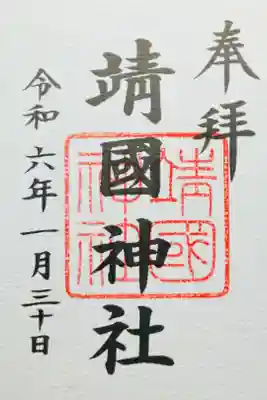 奉拝
靖國神社
靖國
神社
令和六年一月三十日